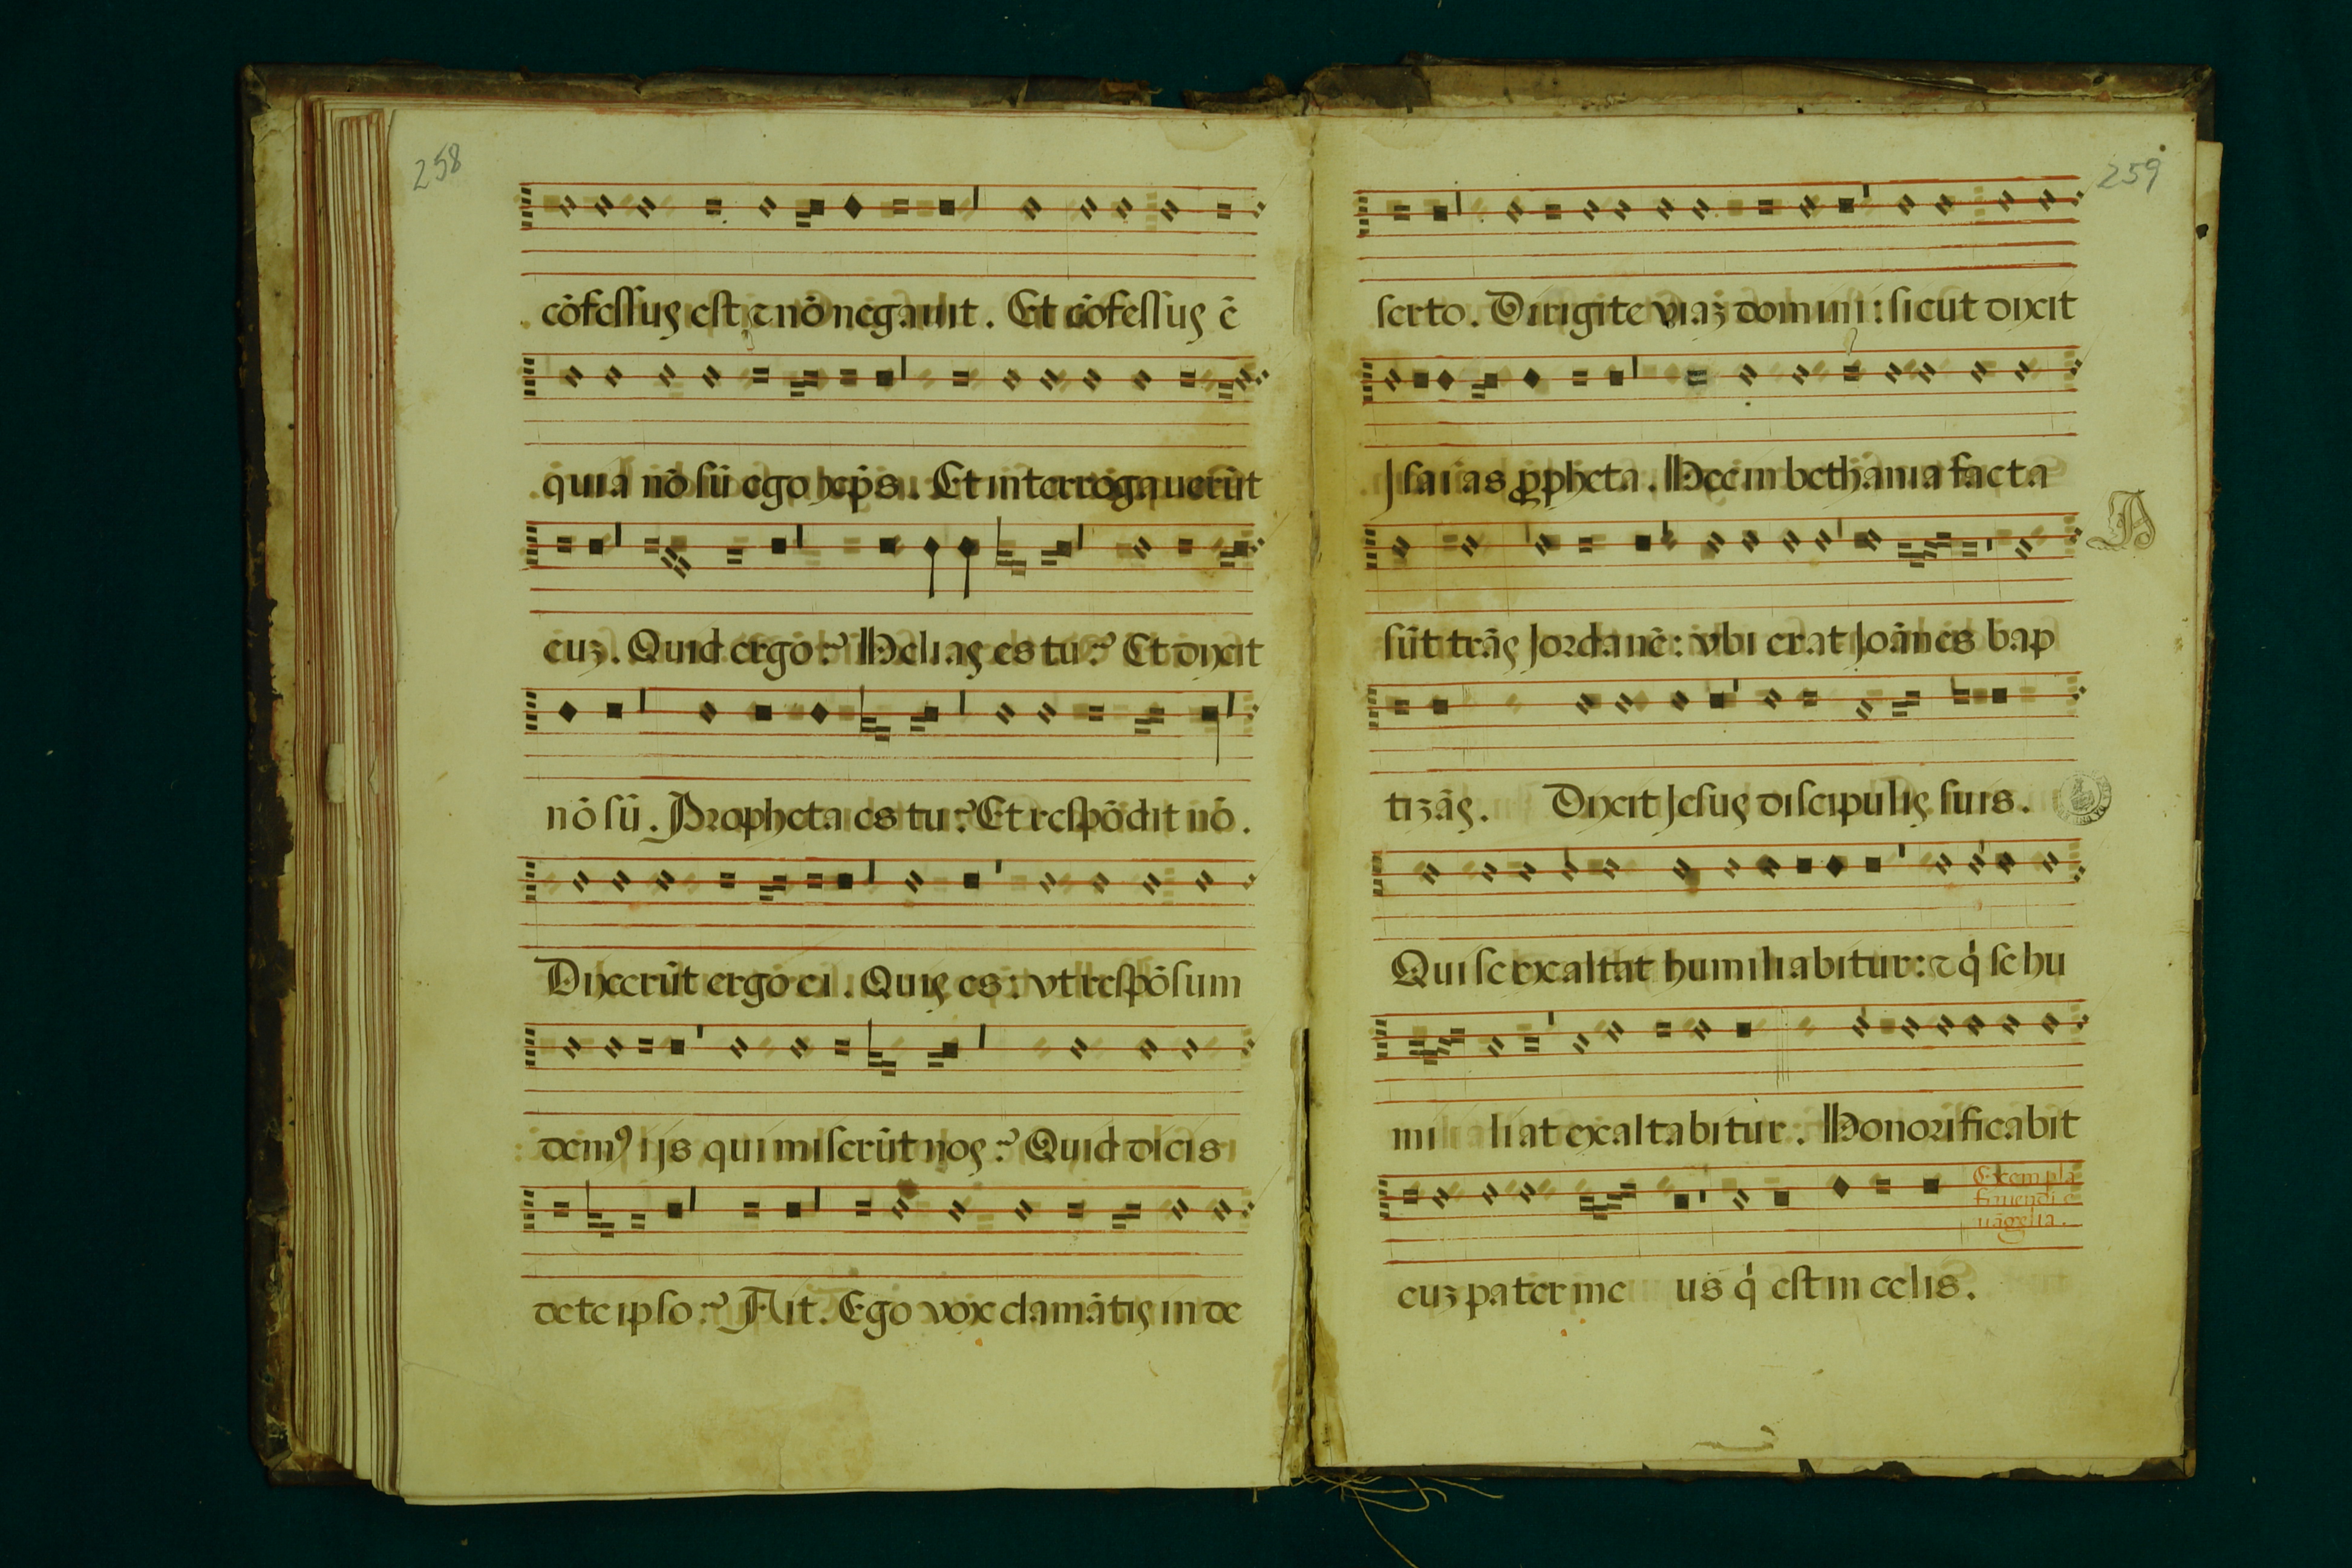 258
cōfessus est ⁊ nō negauit. Et cōfessus ē
quia nō sū ego xp̄s. Et interrogauerūt
euʒ. Quid ergo? Helias es tu? Et dixit
nō sū. Propheta es tu? Et respōdit nō.
Dixerūt ergo ei. Quis es: vt respōsum
demꝰ ijs qui miserūt nos? Quid dicis
de te ipso? Ait. Ego vox clamātis in de
259
serto. Dirigite viaʒ domini: sicut dixit
Isaias ꝓpheta. Hec in bethania facta
sūt trās Jordanē: vbi erat Joānes bap
A
tizās. Dixit Jesus discipulis suis.
Qui se exaltat humiliabitur: ⁊ q̇ se hu
mi liat exaltabitur. Honorificabit
Exempla
finiendi e
uāgelia.
euʒ pater me us q̇ est in celis.